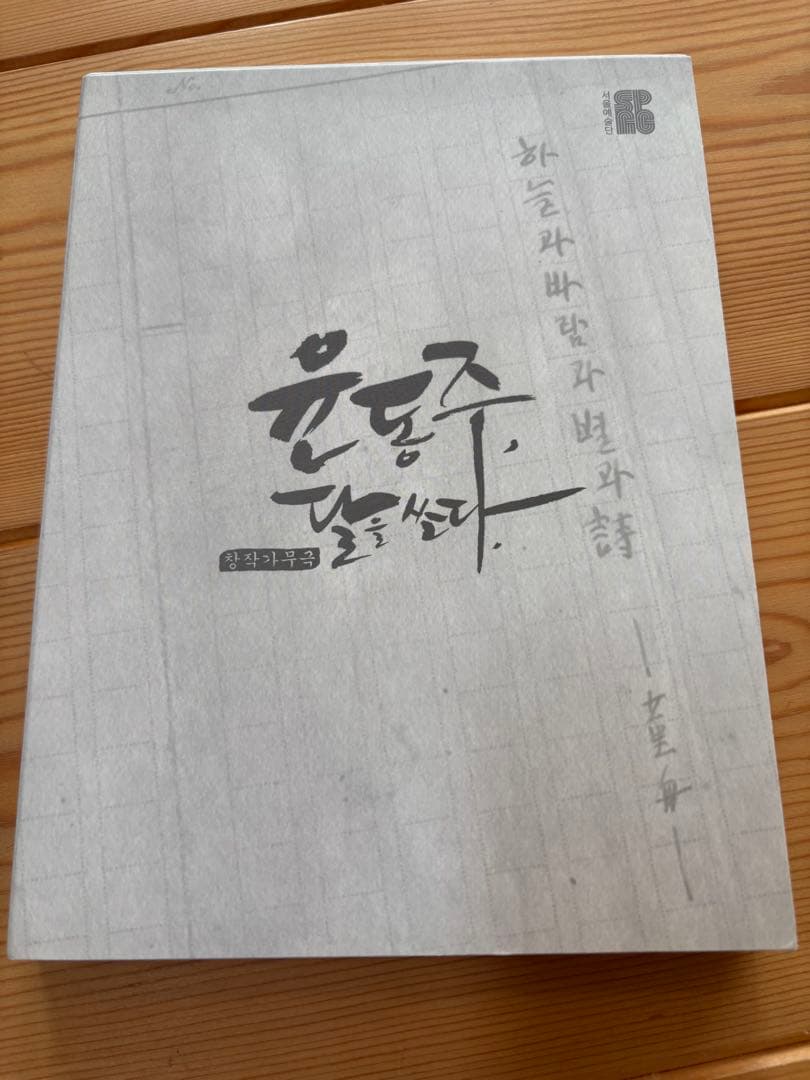 No.
서울예술단
SPAC
하늘과바람과별과詩
윤동주,
달을쏘다.
창작가무극
—童舟—